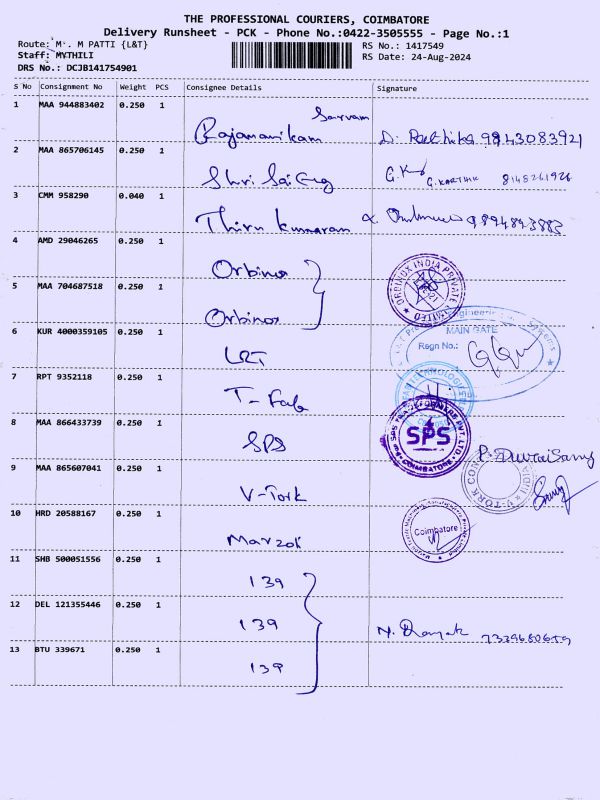 THE PROFESSIONAL COURIERS, COIMBATORE
Delivery Runsheet - PCK - Phone No.:0422-3505555 - Page No.:1
Route: M . M PATTI {L&T}
Staff: MYTHILI
DRS No.: DCJB141754901
RS No.: 1417549
RS Date: 24-Aug-2024
S No Consignment No Weight PCS Consignee Details Signature
1 MAA 944883402 0.250 1 Sarvam Rajamanikam D. Rathika 9843083921
2 MAA 865706145 0.250 1 Shri Sai Eng G. KARTHIK 8148261926
3 CMM 958290 0.040 1 Thiru Kumaran 9894893882
4 AMD 29046265 0.250 1 Orbinox
5 MAA 704687518 0.250 1 Orbinox
ORBINOX INDIA PRIVATE LIMITED
6 KUR 4000359105 0.250 1 L&T
MAIN GATE
Regn No.:
7 RPT 9352118 0.250 1 T-Fab
8 MAA 866433739 0.250 1 SPS
SPS TRANSFORMERS PVT. LTD.
SPS
COIMBATORE
9 MAA 865607041 0.250 1 V-Tork P. DuraiSamy
V-TORK CON
INDIA
10 HRD 20588167 0.250 1 Marzok
Coimbatore
11 SHB 500051556 0.250 1 139
12 DEL 121355446 0.250 1 139
13 BTU 339671 0.250 1 139